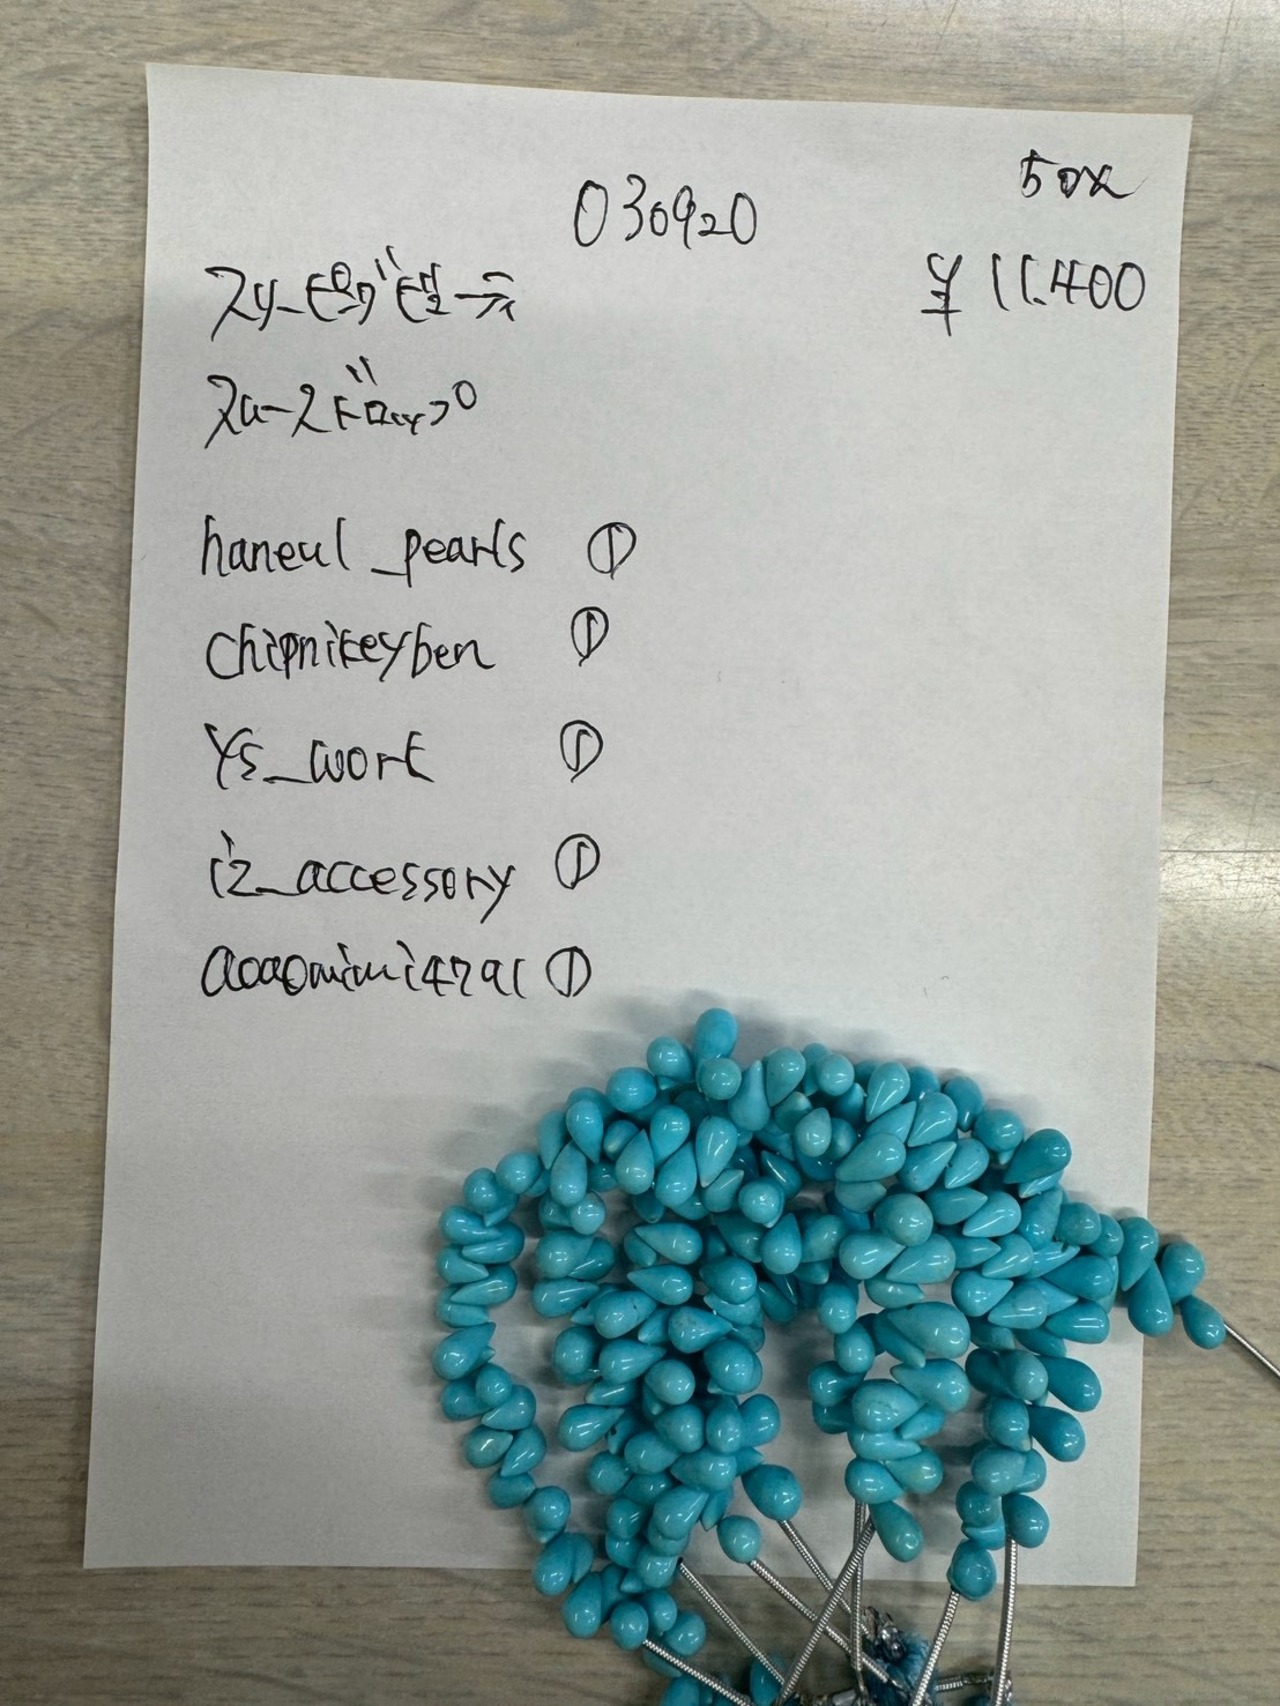 50%
030920
¥11.400
スリーピングビューティ
スムースドロップ
haneul_pearls ①
chipnikeyben ①
YS_work ①
iz_accessory ①
aoaomimi4791 ①